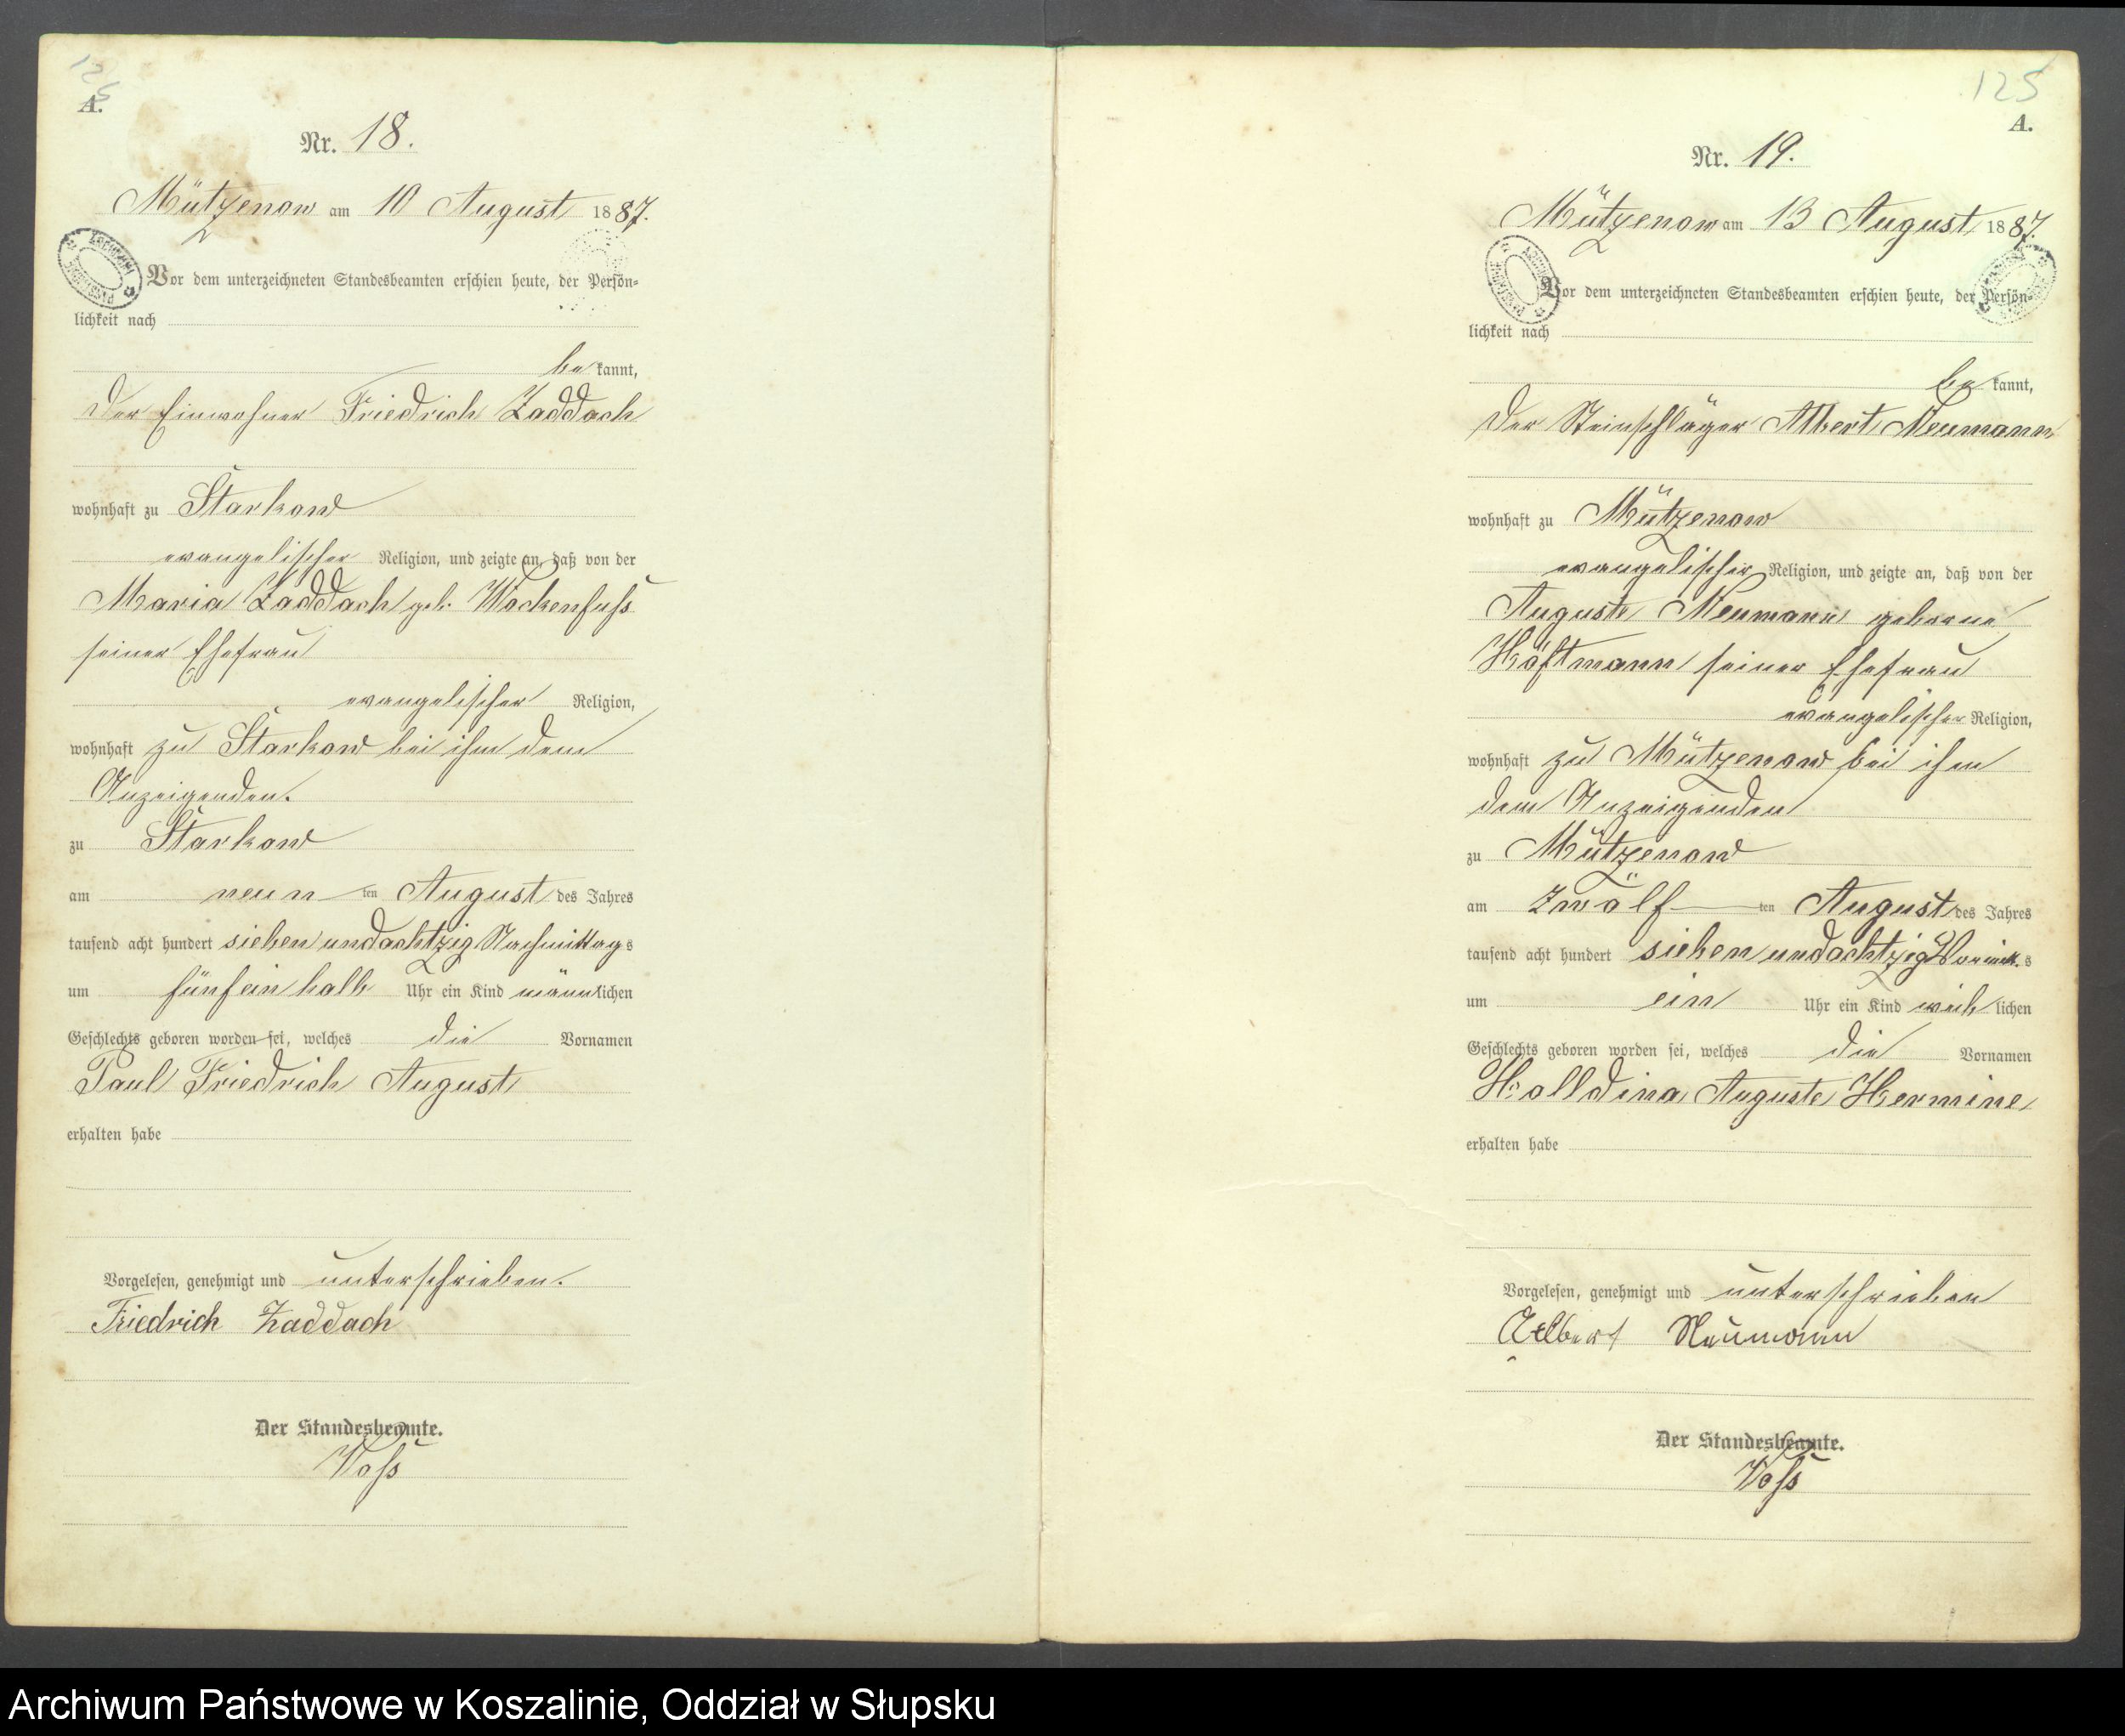 125
A.
Nr. 18.
Mützenow am 10 August 1887.
Vor dem unterzeichneten Standesbeamten erschien heute, der Persön-
lichkeit nach
bekannt,
der Einwohner Friedrich Zaddach
wohnhaft zu Starkow
evangelischer Religion, und zeigte an, daß von der
Maria Zaddach geb. Wockenfuß
seiner Ehefrau
evangelischer Religion,
wohnhaft zu Starkow bei ihm dem
Anzeigenden.
zu Starkow
am neunten August des Jahres
tausend acht hundert siebenundachtzig Nachmittags
um fünfeinhalb Uhr ein Kind männlichen
Geschlechts geboren worden sei, welches die Vornamen
Paul Friedrich August
erhalten habe
Vorgelesen, genehmigt und unterschrieben.
Friedrich Zaddach
Der Standesbeamte.
Voß
125
A.
Nr. 19.
Mützenow am 13 August 1887.
Vor dem unterzeichneten Standesbeamten erschien heute, der Persön-
lichkeit nach
bekannt,
der Steinschläger Albert Neumann
wohnhaft zu Mützenow
evangelischer Religion, und zeigte an, daß von der
Auguste Neumann geborne
Höftmann seiner Ehefrau
evangelischer Religion,
wohnhaft zu Mützenow bei ihm
dem Anzeigenden
zu Mützenow
am zwölften August des Jahres
tausend acht hundert siebenundachtzig Vormitt.s
um ein Uhr ein Kind weiblichen
Geschlechts geboren worden sei, welches die Vornamen
Holldina Auguste Hermine
erhalten habe
Vorgelesen, genehmigt und unterschrieben
Albert Neumann
Der Standesbeamte.
Voß
Archiwum Państwowe w Koszalinie, Oddział w Słupsku